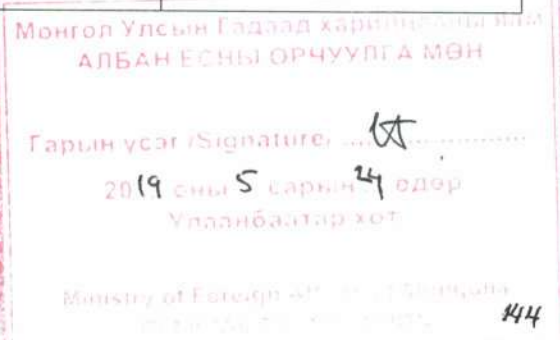 Монгол Улсын Гадаад харилцааны яам
АЛБАН ЁСНЫ ОРЧУУЛГА МӨН
Гарын үсэг /Signature/ ....................
2019 оны 5 сарын 24 өдөр
Улаанбаатар хот
Ministry of Foreign
144